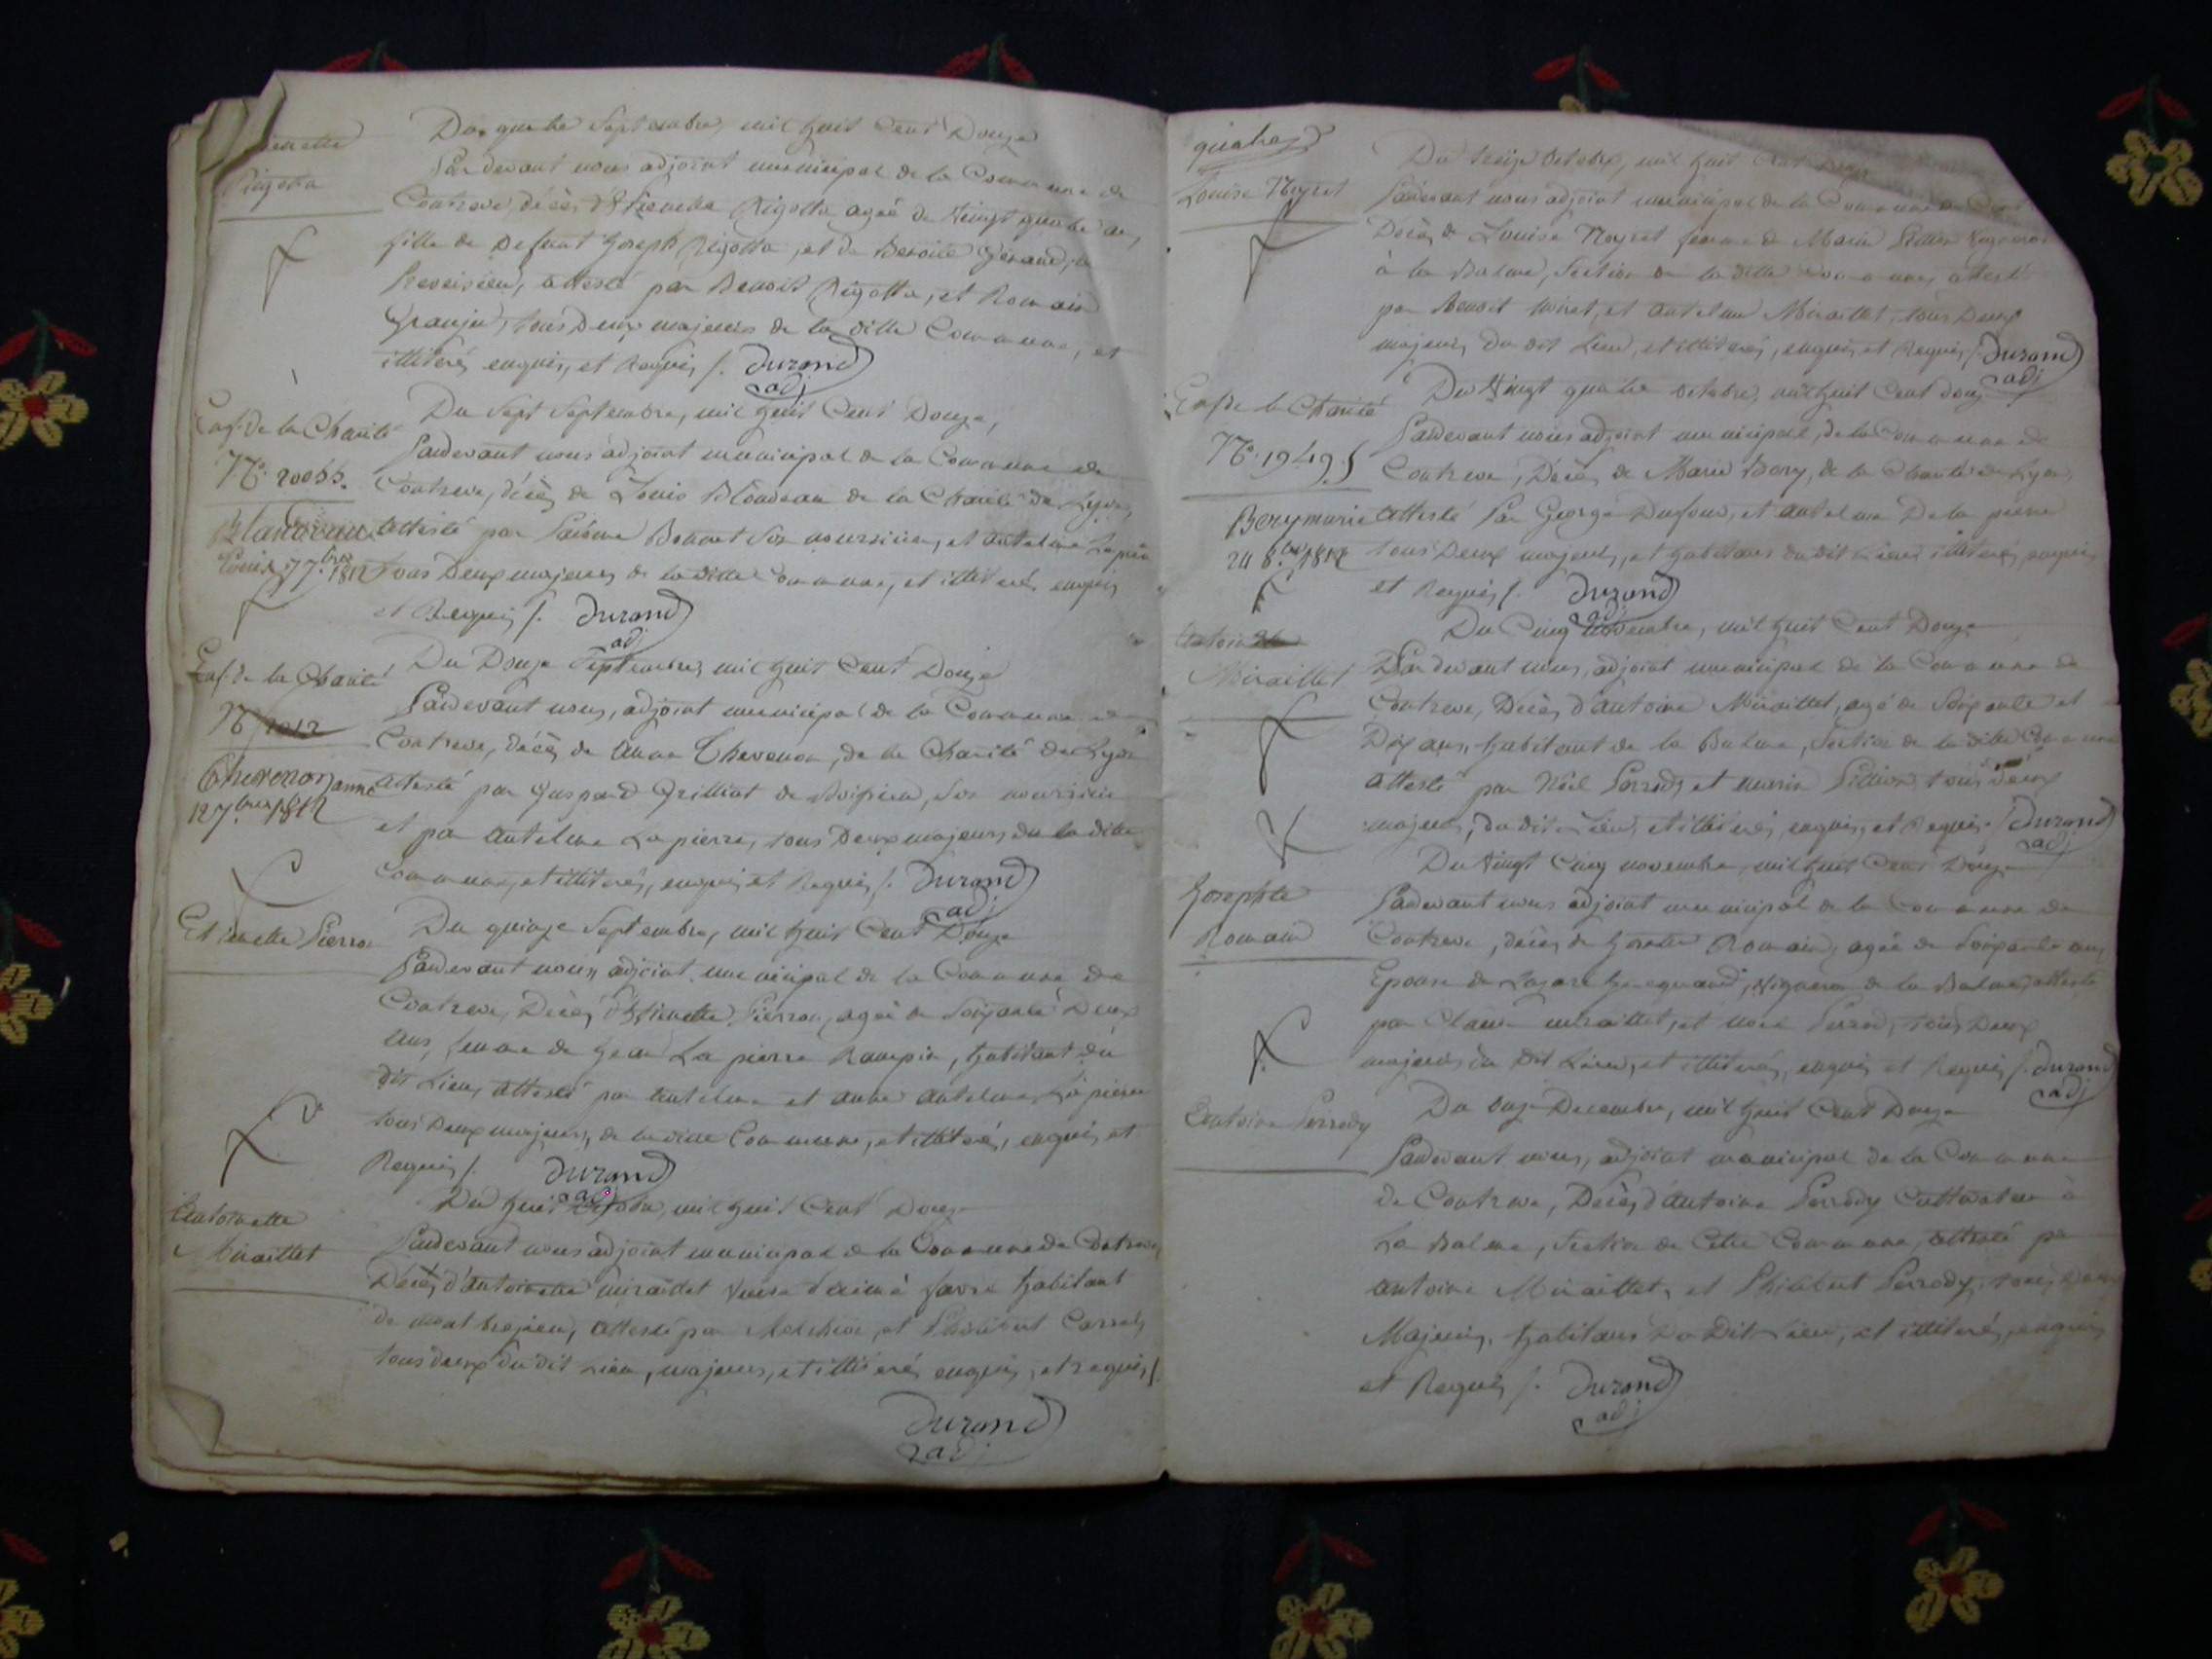 Rigotta
Du quatre Septembre, mil huit Cent Douze
Pardevant nous adjoint municipal de la Commune de
Contreve, décès d'Etienette Rigotta agée de Vingt quatre ans,
fille de Defunt Joseph Rigotta, et de Benoite Geraud, a
attesté par Benoit Rigotta, et Romain
tous Deux majeurs de la ditte Commune, et
illiterés enquis, et Requis /. Durand
adj
Enf. de la Charité
N°. 20055.
Blandeau
Louis, 7 7.bre 1812
Du Sept Septembre, mil huit Cent Douze,
Pardevant nous adjoint municipal de la Commune de
Contreve, décès de Louis Blondeau de la Charité de Lyon,
attesté par Bonnet Son nourricier, et antelme Lapierre
tous Deux majeurs de la ditte Commune, et illiterés enquis
et Requis /. Durand
adj
Enf. de la Charité
N° 2012
Thevenon anne
12 7.bre 1812
Du Douze Septembre, mil huit Cent Douze
Pardevant nous, adjoint municipal de la Commune de
Contreve, décès de anne Thevenon, de la Charité de Lyon
attesté par Gaspard Grilliat de Son nourricier
et par antelme La pierre, tous Deux majeurs de la ditte
Commune, et illiterés, enquis et Requis /. Durand
adj
Etienette Pierron
Du quinze Septembre, mil huit Cent Douze
Pardevant nous, adjoint municipal de la Commune de
Contreve, Décès d'Etienette Pierron, agée de Soixante Deux
ans, femme de Jean La pierre Rampin, habitant du
dit Lieu, attesté par antelme et anne antelme La pierre
tous Deux majeurs, de la ditte Commune, et illiterés, enquis et
Requis /. Durand
adj
Antoinette
Miraillet
Du huit octobre, mil huit Cent Douze
Pardevant nous adjoint municipal de la Commune de Contreve,
Décès d'antoinette miraillet Veuve d'aimé favre habitant
de attesté par Melchior, et Philibert Carrel,
tous deux du dit Lieu, majeurs, et illiterés enquis, et requis /.
Durand
adj
quatre
Louise Neyret
Du treize octobre, mil huit Cent Douze
Pardevant nous adjoint municipal de la Commune de
Décès de Louise Neyret femme de Marin Vigneron
à la Balme, Section de la ditte Commune, attesté
par Benoit et antelme Miraillet, tous Deux
majeurs, Du dit Lieu, et illiterés, enquis et Requis /. Durand
adj
Enf. de la Charité
N°. 19495
Bery marie
24 8.bre 1812
Du Vingt quatre octobre, mil huit Cent douze
Pardevant nous adjoint municipal, de la Commune de
Contreve, Décès de Marie Bery, de la Charité de Lyon,
attesté Par George Dufour, et antelme De la pierre
tous Deux majeurs, et habitans du dit Lieu, illiterés, enquis
et Requis /. Durand
adj
Antoine
Miraillet
Du Cinq Novembre, mil huit Cent Douze
Pardevant nous, adjoint municipal de la Commune de
Contreve, Décès d'antoine Miraillet, agé de Soixante et
Dix ans, habitant de la Balme, Section de la ditte Commune
attesté par Noël Perrody, et tous deux
majeurs, du dit Lieu, et illiterés, enquis, et Requis. / Durand
adj
Josephte
Romain
Du Vingt Cinq novembre, mil huit Cent Douze
Pardevant nous adjoint municipal de la Commune de
Contreve, décès de Josephte Romain, agée de Soixante ans,
Epouse de Lazare Vigneron de la Balme, attesté
par Claude miraillet, et noel tous Deux
majeurs du Dit Lieu, et illiterés, enquis et Requis /. Durand
adj
Antoine Perrody
Du onze Decembre, mil huit Cent Douze
Pardevant nous, adjoint municipal de la Commune
de Contreve, Décès d'antoine Perrody Cultivateur à
La Balme, Section de Cette Commune, attesté par
antoine Miraillet, et Philibert Perrody, tous Deux
Majeurs, habitans Du Dit Lieu, et illiterés, enquis
et Requis /. Durand
adj